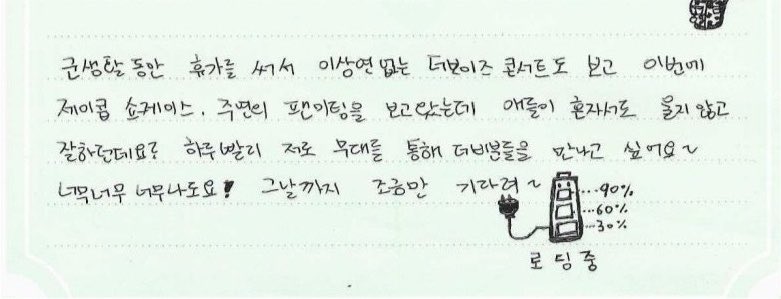 군생활 동안 휴가를 써서 이상연 없는 더보이즈 콘서트도 보고 이번에
제이콥 쇼케이스, 주연의 팬미팅을 보고 왔는데 애들이 혼자서도 울지 않고
잘하던데요? 하루빨리 저도 무대를 통해 더비분들을 만나고 싶어요~
너무너무 너무나도요! 그날까지 조금만 기다려~
90%
60%
30%
로딩중